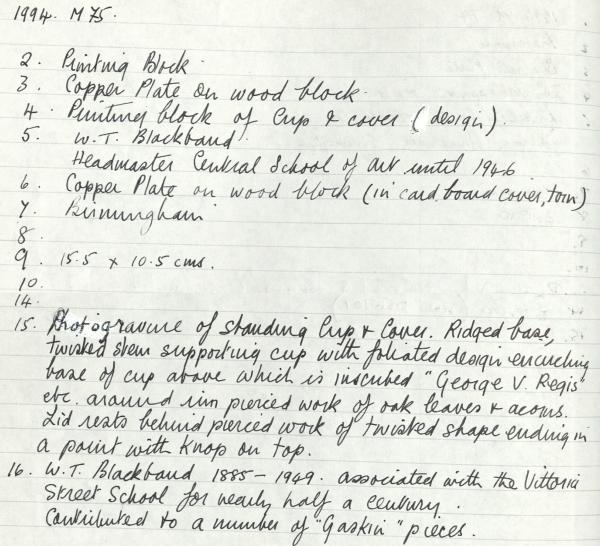 1994. M75.
2. Printing Block.
3. Copper Plate on wood block.
4. Printing block of Cup & cover (design).
5. W.T. Blackband.
Headmaster Central School of Art until 1946
6. Copper Plate on wood block (in card board cover, torn)
7. Birmingham
8.
9. 15.5 x 10.5 cms.
10.
14.
15. Photogravure of standing Cup & Cover. Ridged base,
twisted stem supporting cup with foliated design encircling
base of cup above which is inscribed "George V. Regis"
etc. around rim pierced work of oak leaves & acorns.
Lid rests behind pierced work of twisted shape ending in
a point with knop on top.
16. W.T. Blackband 1885-1949. associated with the Vittoria
Street School for nearly half a century.
Contributed to a number of "Gaskin" pieces.